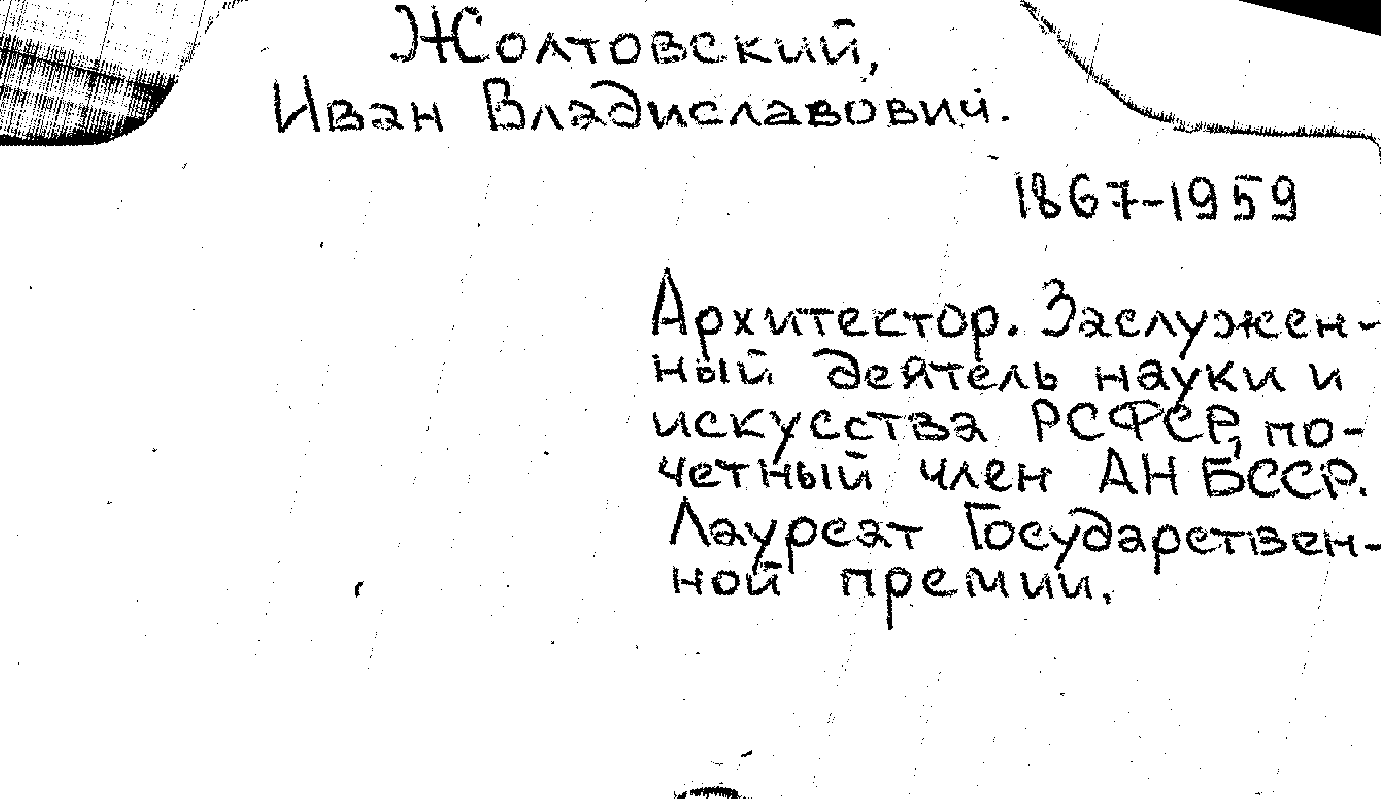 Жолтовский,
Иван Владиславович.
1867-1959
Архитектор. Заслужен-
ный деятель науки и
искусства РСФСР, по-
четный член АН БССР.
Лауреат Государствен-
ной премии.